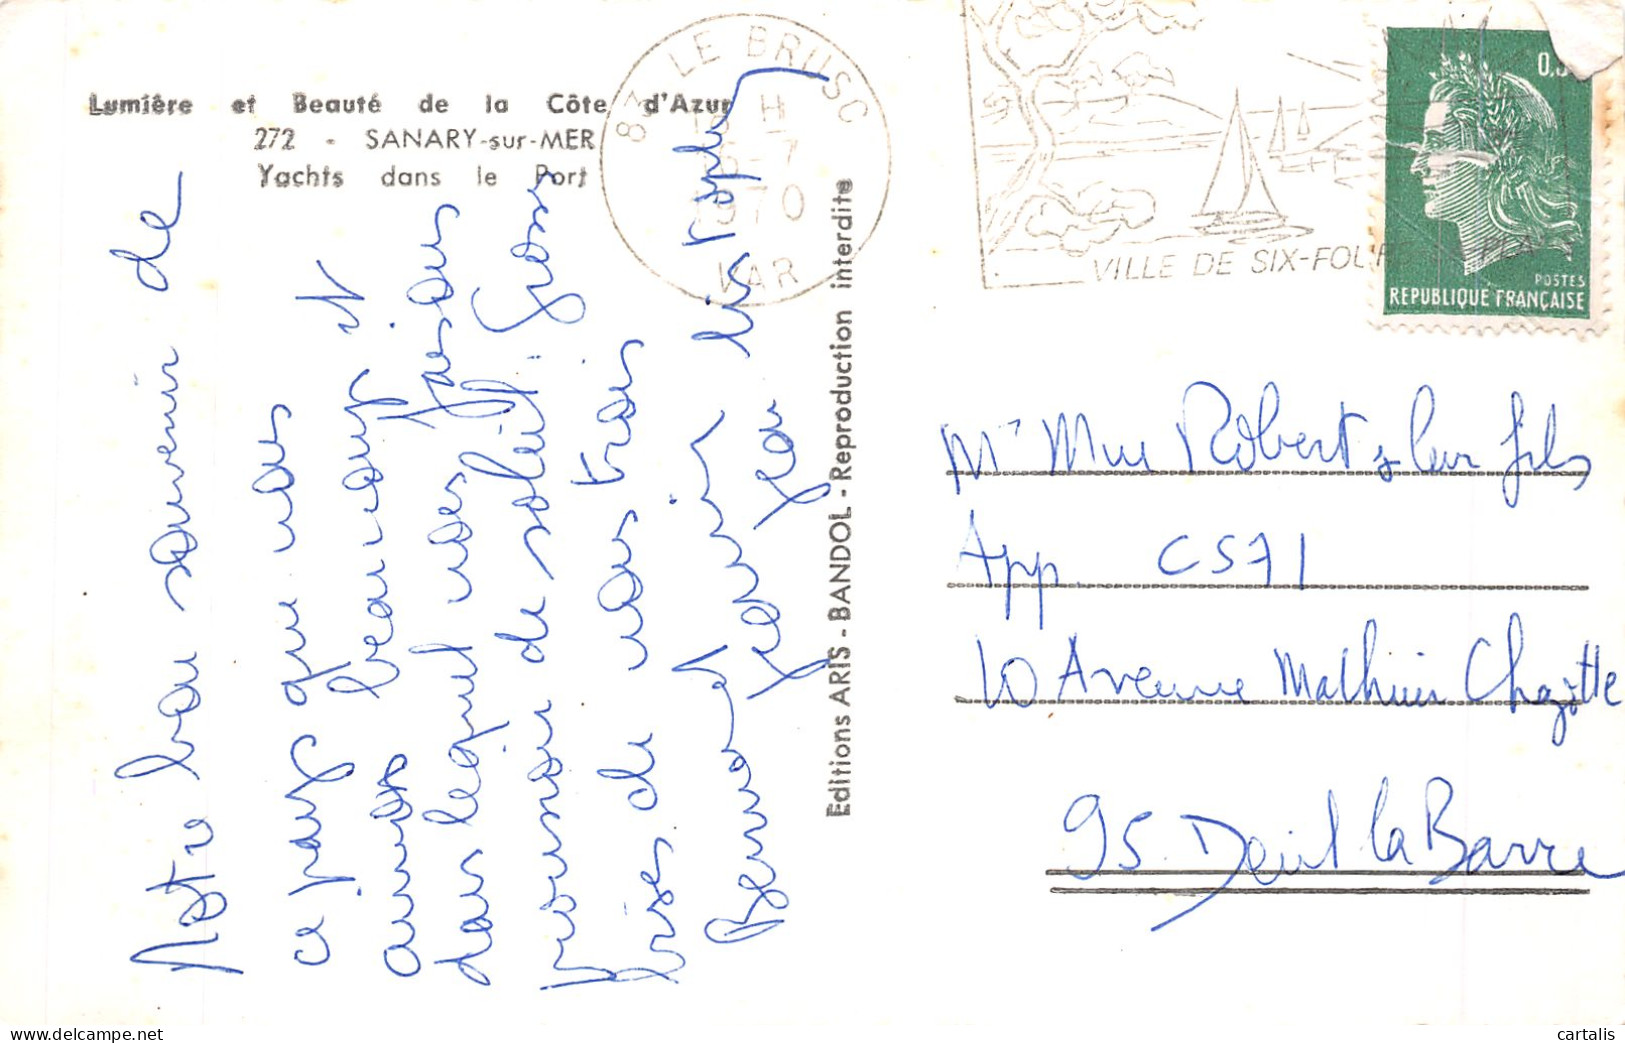 Lumière et Beauté de la Côte d'Azur
272 - SANARY-sur-MER
Yachts dans le Port
83 LE BRUSC
18 H
-7
1970
VAR
VILLE DE SIX-FOURS PLA
0,3
POSTES
REPUBLIQUE FRANÇAISE
Editions ARIS - BANDOL - Reproduction interdite
Notre bon souvenir de
ce pays que vous
aimez beaucoup et
dans lequel nous faisons
provision de soleil. Grosses
bises de nous trois
Bernard
Jean lis
Mr Mme Robert & leur fils
App C571
10 Avenue Mathieu Chazotte
95. Deuil la Barre
cartalis